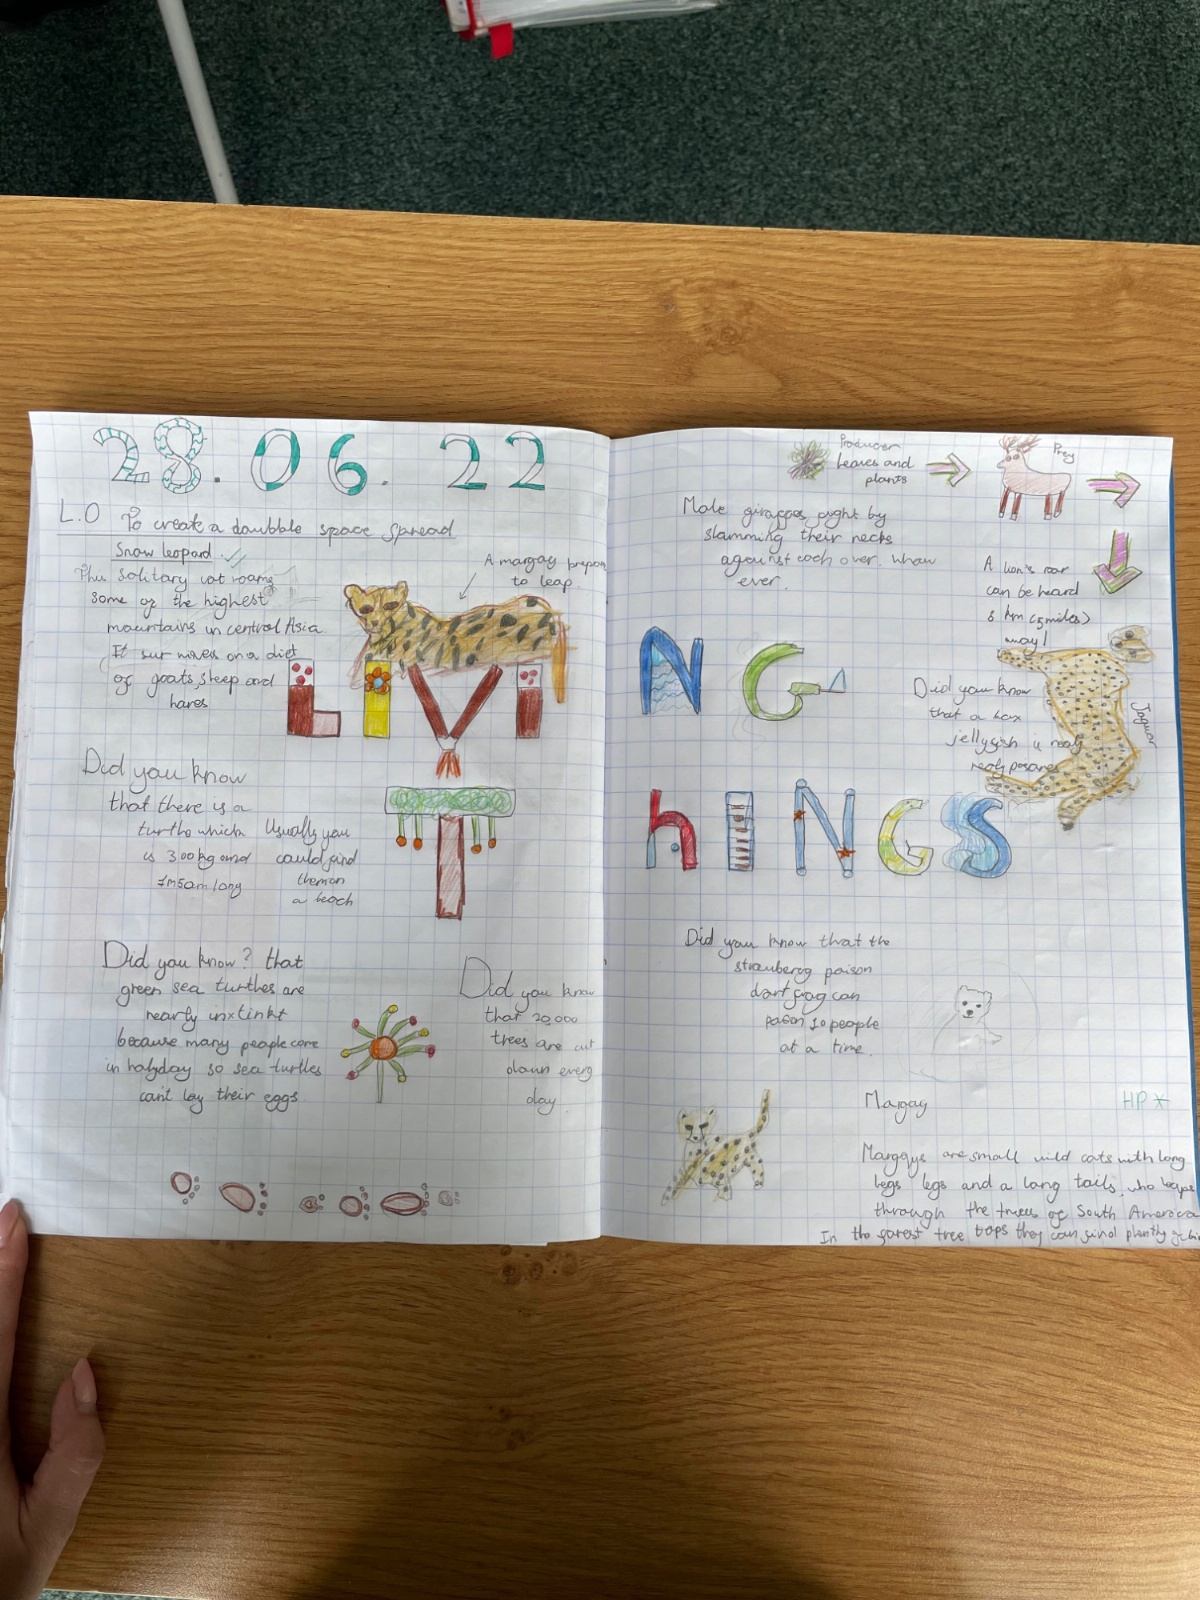 28.06.22
L.O To create a doubble space spread
Snow leopard
This solitary cat roams
some of the highest
mountains in central Asia
It survives on a diet
of goats, sheep and
hares
A margay prepares
to leap.
LIVI
Did you know
that there is a
turtle which
is 300kg and
1m50m long
Usually you
could find
them on
a beach
T
Did you know? that
green sea turtles are
nearly inxtinkt
because many people come
in holyday so sea turtles
can't lay their eggs
Did you know
that 20,000
trees are cut
down every
day
Producer
Leaves and
plants
Prey
Male giraffes fight by
slamming their necks
against each over.
ever.
A lion's roar
can be heard
8 km (5 miles)
away!
NG
Did you know
that a box
jellyfish is realy
realy
Jaguar
hINGS
Did you know that the
strawberry poison
dart frog can
poison 10 people
at a time.
Margay
HP*
Margays are small wild cats with long
legs legs and a long tails, who leaps
through the trees of South America
In the forest tree tops they can find plenty of